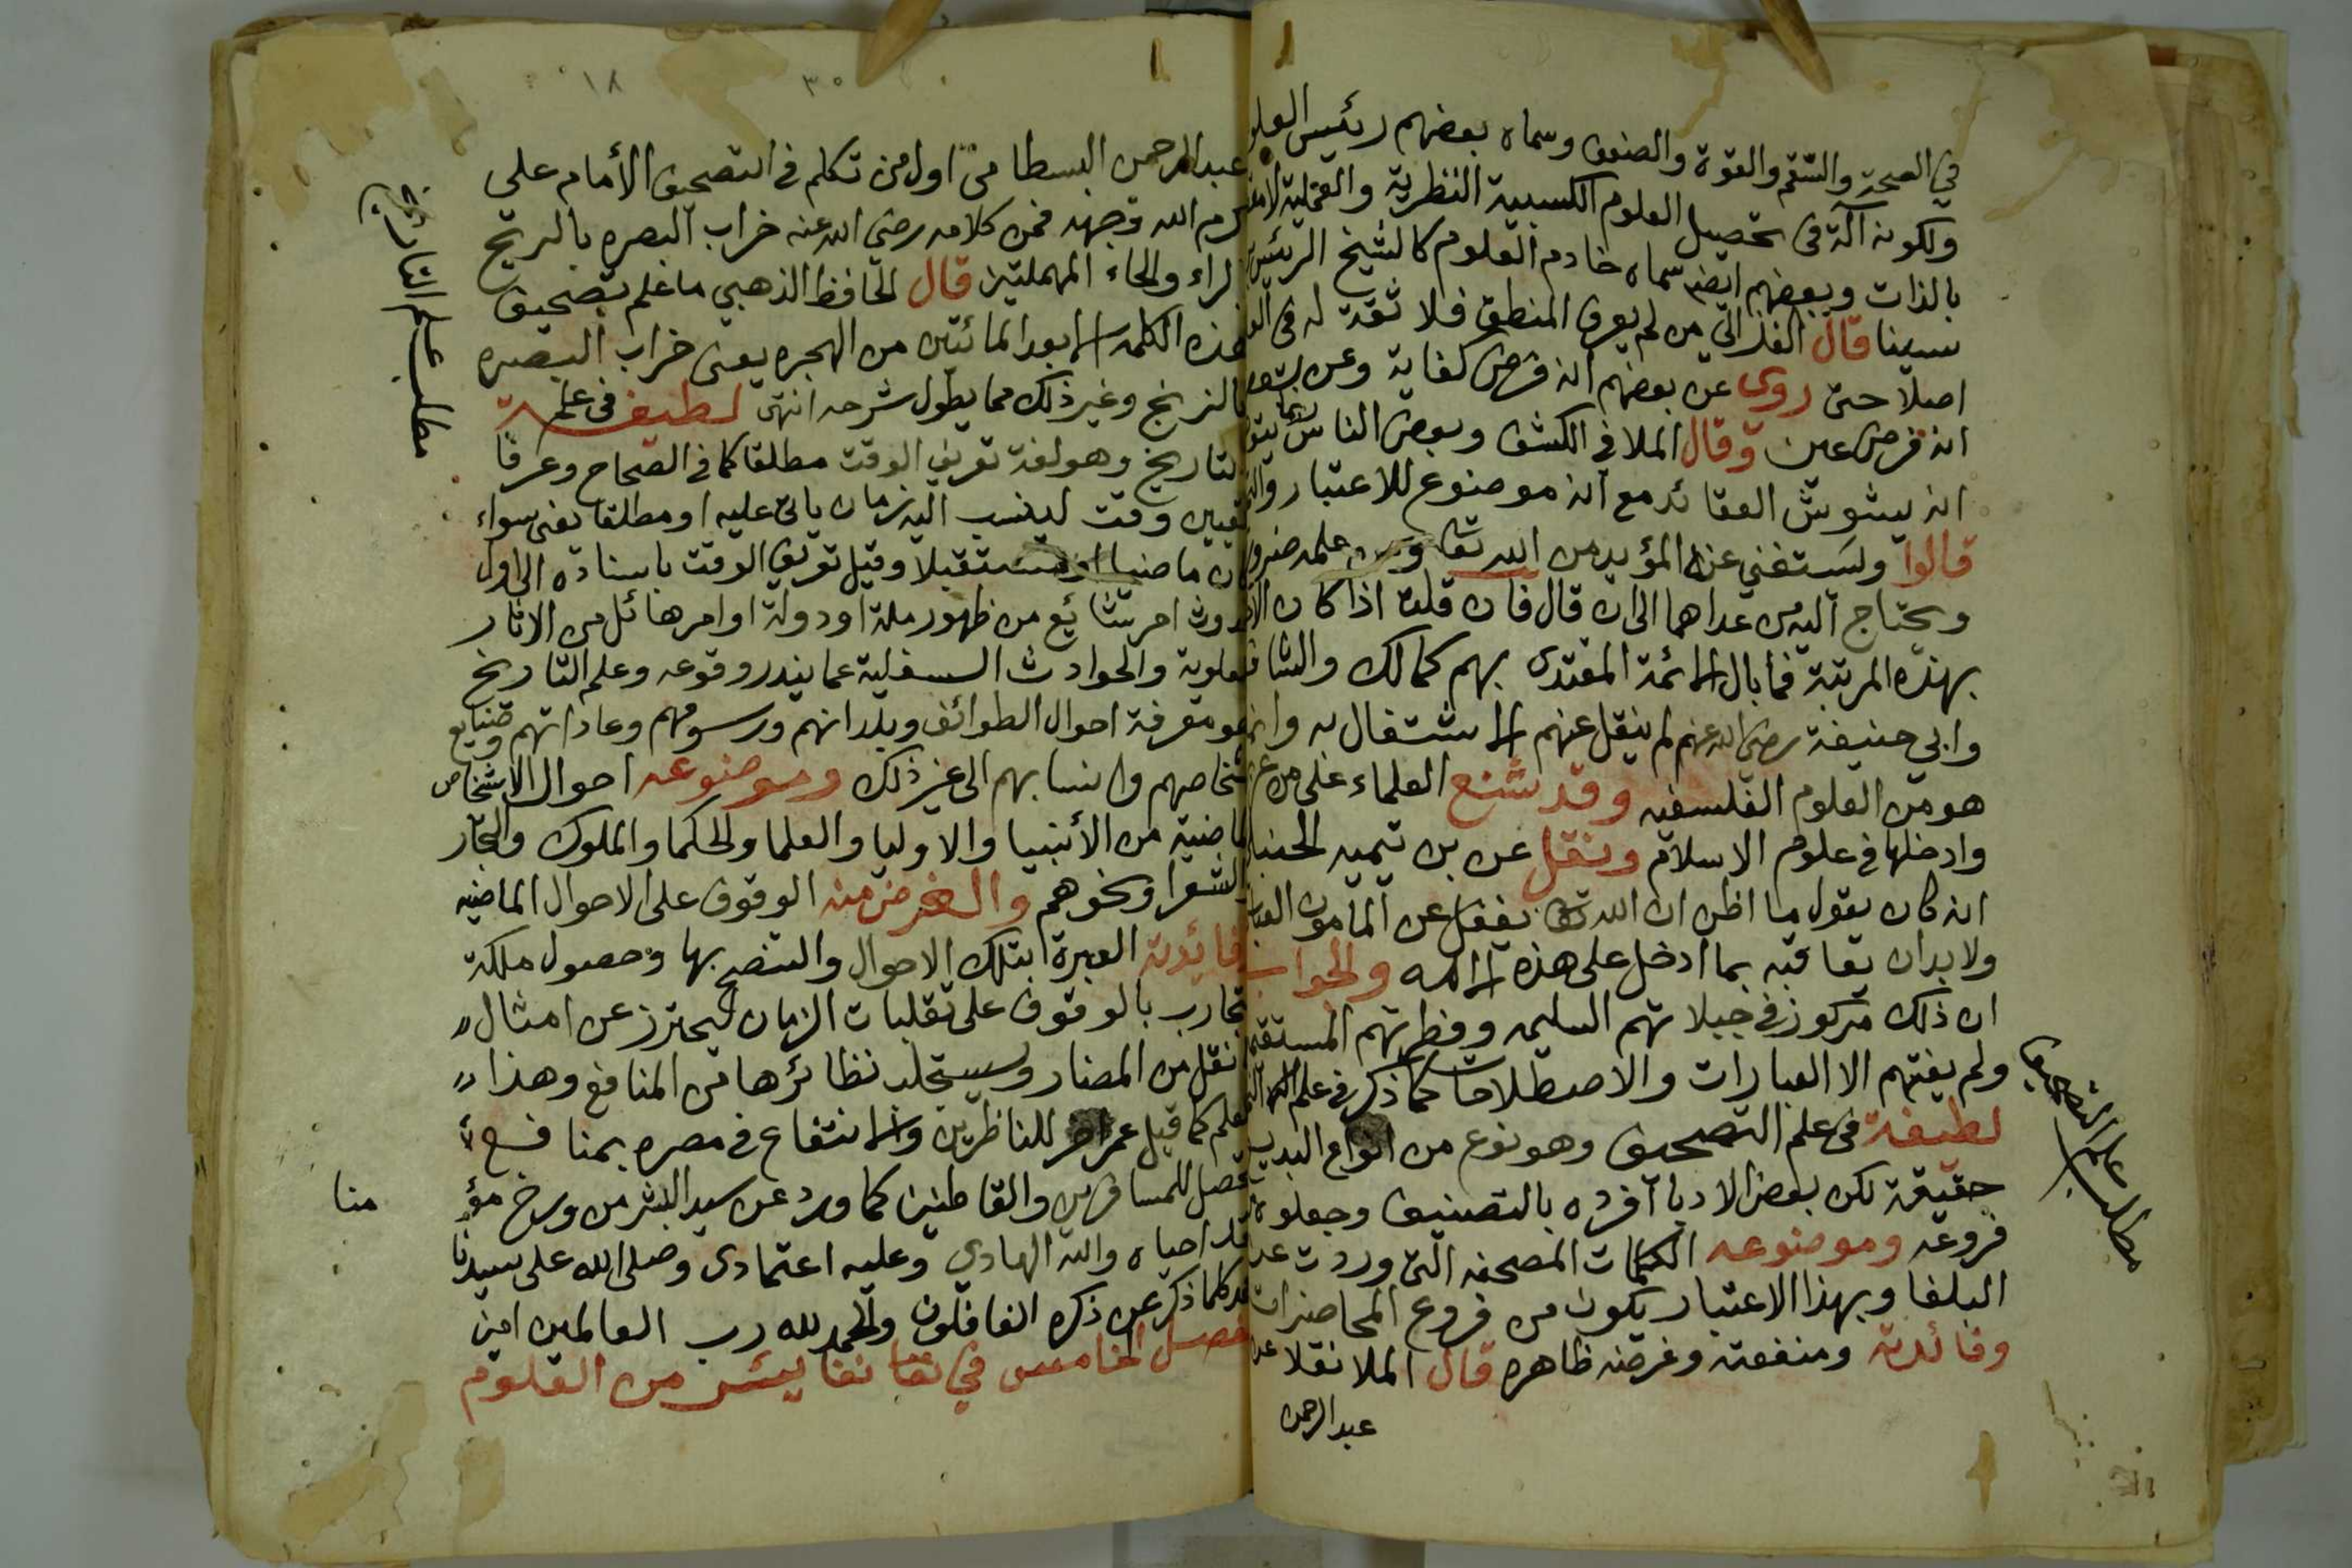 في الصحة والسقم والقوة والضعف وسماه بعضهم رئيس العلو
ولكونه آلة فى تحصيل العلوم الكسبية النظرية والعملية لا
بالذات وبعضهم ايضا سماه خادم العلوم كالشيخ الرئيس
سينا قال الغزالي من لم يعرف المنطق فلا ثقة له فى
اصلا حتى روى عن بعضهم انه فرض كفاية وعن بعض
انه فرض عين وقال الملا في الكشف وبعض الناس ربما
انه يشوش العقائد مع انه موضوع للاعتبار
قالوا ويستغني عنه المؤيد من الله تعا علمه ضرو
ويحتاج اليه من عداهما الى ان قال فان قلت اذا كان
بهذه المرتبة فما بال الائمة المقتدى بهم كمالك والشا
وابي حنيفة رضى الله عنهم لم ينقل عنهم الاشتغال به وانما
هو من العلوم الفلسفيه وقد شنع العلماء على من عر
وادخلها في علوم الاسلام ونقل عن بن تيميه الحنبا
انه كان يقول ما اظن ان الله تعا يغفل عن المامون العبا
ولا بد ان يعاقبه بما ادخل على هذه الامه والجواب
ان ذلك مركوز في جبلاتهم السليمه وفطرتهم المستقيم
ولم يفتهم الا العبارات والاصطلاحات كما ذكر في علم
لطيفة فى علم التصحيف وهو نوع من انواع البديـ
حقيقة لكن بعض الادبا افرده بالتصنيف وجعلوه
فروعه وموضوعه الكلمات المصحفه التى وردت عن
البلغا وبهذا الاعتبار يكون من فروع المحاضرات
وفائدته ومنفعته وغرضه ظاهره قال الملا نقلا عن
عبد الرحمن
مطلب علم التصحيف
٣٠ ١٨
عبد الرحمن البسطامى اول من تكلم في التصحيف الأمام على
كرم الله وجهه فمن كلامه رضي الله عنه خراب البصره بالريح
الراء والحاء المهملتين قال الحافظ الذهبي ما علم تصحيف
هذه الكلمه الا بعد المائتين من الهجره يعنى خراب البصره
بالزنج وغير ذلك مما يطول شرحه انتهى لطيفه في علم
التاريخ وهو لغة تعريف الوقت مطلقا كما في الصحاح وعرفا
تعيين وقت لينسب اليه زمان ياتى عليه او مطلقا يعنى سواء
كان ماضيا او مستقبلا وقيل تعريف الوقت باسناده الى اول
حدوث امر شائع من ظهور ملة او دولة او امر هائل من الاثار
العلوية والحوادث السفلية عما يندر وقوعه وعلم التاريخ
هو معرفة احوال الطوائف وبلدانهم ورسومهم وعاداتهم وصنايع
اشخاصهم وانسابهم الى غير ذلك وموضوعه احوال الاشخاص
الماضية من الأنبيا والاوليا والعلما والحكما والملوك والتجار
الشعرا ونحوهم والغرض منه الوقوف على الاحوال الماضيه
وفائدته العبرة بتلك الاحوال والتنصح بها وحصول ملكة
تجارب بالوقوف على تقلبات الزمان ليحترز عن امثال
نقل من المضار ويستجلب نظائرها من المنافع وهذا
العلم كما قيل عمر اخر للناظرين والانتفاع في مصره بمنافـع
تحصل للمسافرين والقاطنين كما ورد عن سيد البشر من ورخ مؤ
منا
فقد احياه والله الهادي وعليه اعتمادى وصلى الله على سيدنا
كلما ذكر عن ذكره الغافلون والحمد لله رب العالمين امين
فصل الخامس في نفايس من العلوم
مطلب علم التاريخ